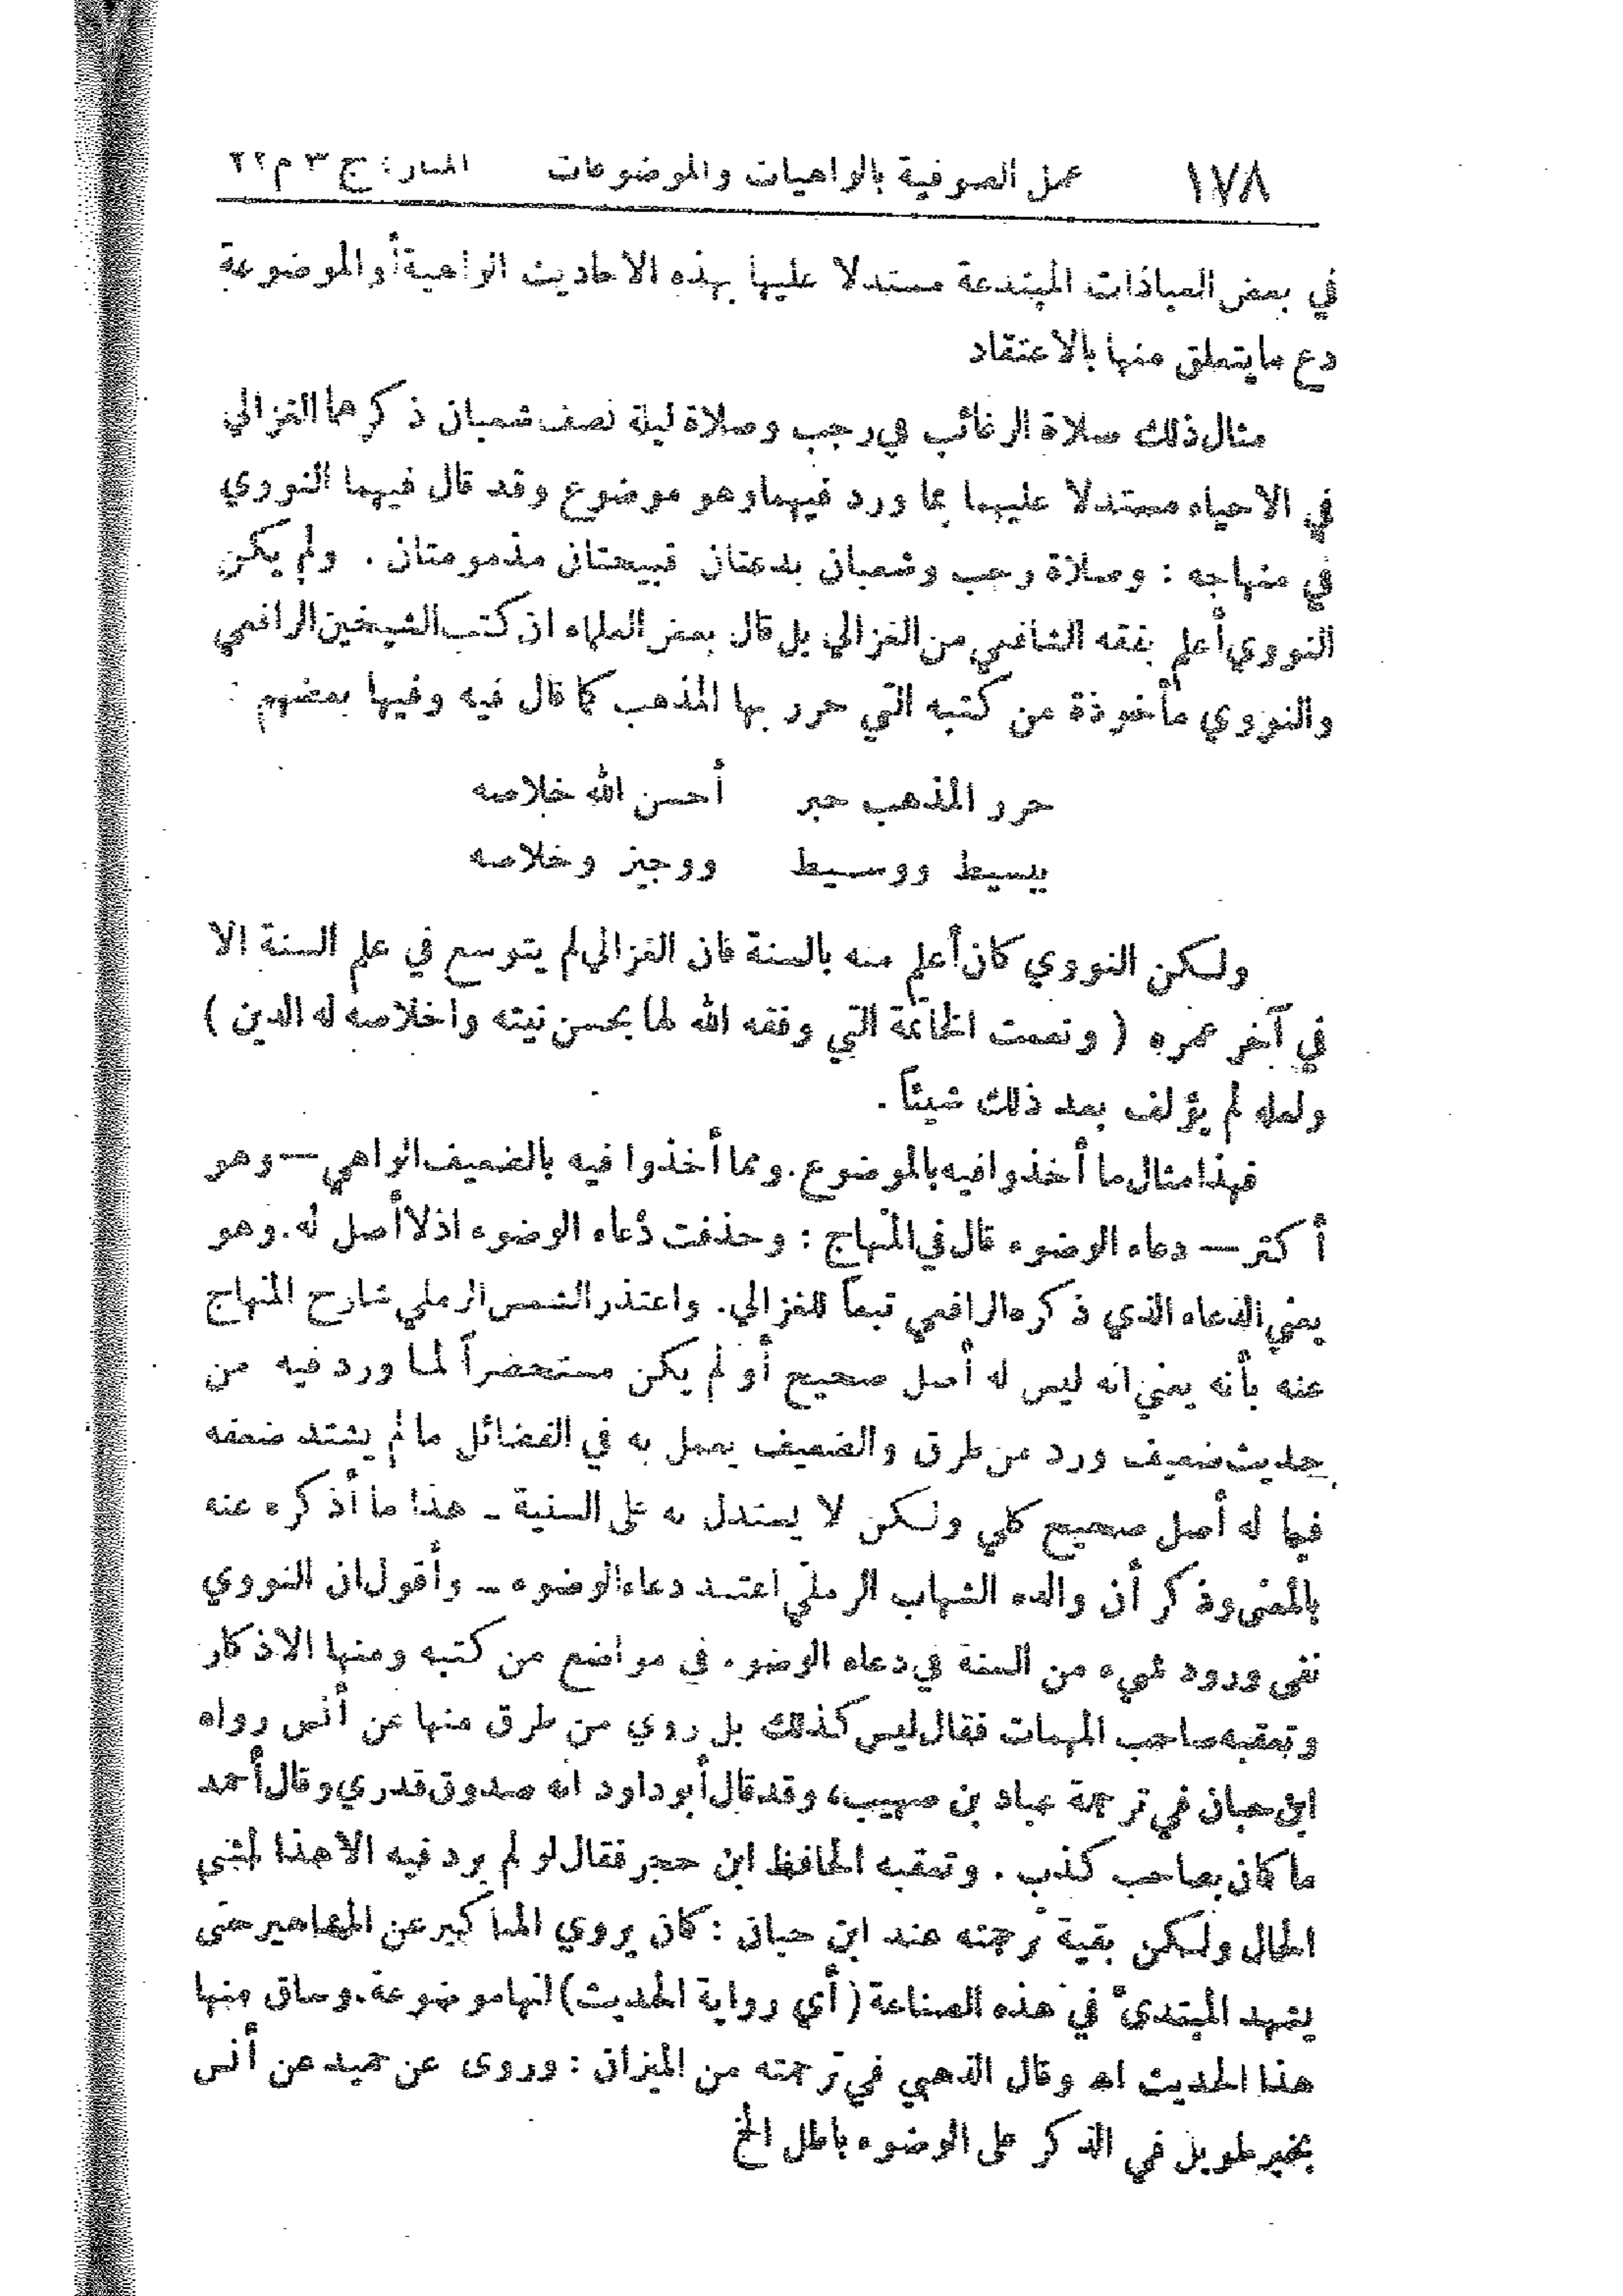 ١٧٨ عمل الصوفية بالواهيات والموضوعات المنار: ج ٣ م ٢٢
في بعض العبادات المبتدعة مستدلا عليها بهذه الاحاديث الواهية أو الموضوعة
دع ما يتعلق منها بالاعتقاد
مثال ذلك صلاة الرغائب في رجب وصلاة ليلة نصف شعبان ذكرهما الغزالي
في الاحياء مستدلا عليهما بما ورد فيهما وهو موضوع وقد قال فيهما النووي
في منهاجه : وصلاة رجب وشعبان بدعتان قبيحتان مذمومتان . ولم يكن
النووي أعلم بفقه الشافعي من الغزالي بل قال بعض العلماء ان كتب الشيخين الرافعي
والنووي مأخوذة من كتبه التي حرر بها المذهب كما قال فيه وفيها بعضهم :
حرر المذهب حبر أحسن الله خلاصه
ببسيط ووسيط ووجيز وخلاصه
ولكن النووي كان أعلم منه بالسنة فان الغزالي لم يتوسع في علم السنة الا
في آخر عمره ( ونعمت الخاتمة التي وفقه الله لها بحسن نيته واخلاصه له الدين )
ولعله لم يؤلف بعد ذلك شيئاً .
فهذا مثال ما أخذوا فيه بالموضوع . ومما أخذوا فيه بالضعيف الواهي — وهو
أكثر — دعاء الوضوء قال في المنهاج : وحذفت دعاء الوضوء اذ لا أصل له . وهو
يعني الدعاء الذي ذكره الرافعي تبعاً للغزالي . واعتذر الشمس الرملي شارح المنهاج
عنه بأنه يعني انه ليس له أصل صحيح أو لم يكن مستحضراً لما ورد فيه من
حديث ضعيف ورد من طرق والضعيف يعمل به في الفضائل ما لم يشتد ضعفه
فيما له أصل صحيح كلي ولكن لا يستدل به على السنية - هذا ما أذكره عنه
بالمعنى وذكر أن والده الشهاب الرملي اعتمد دعاء الوضوء - وأقول ان النووي
نفى ورود شيء من السنة في دعاء الوضوء في مواضع من كتبه ومنها الاذكار
وتعقبه صاحب المهمات فقال ليس كذلك بل روي من طرق منها عن أنس رواه
ابن حبان في ترجمة عباد بن صهيب ، وقد قال أبو داود انه صدوق قدري وقال أحمد
ما كان بصاحب كذب . وتعقبه الحافظ ابن حجر فقال لو لم يرد فيه الا هذا لمشى
الحال ولكن بقية ترجمته عند ابن حبان : كان يروي المناكير عن المشاهير حتى
يشهد المبتدئ في هذه الصناعة ( أي رواية الحديث ) انها موضوعة . وساق منها
هذا الحديث اه وقال الذهبي في ترجمته من الميزان : وروى عن حميد عن أنس
بخبر طويل في الذكر على الوضوء باطل الخ